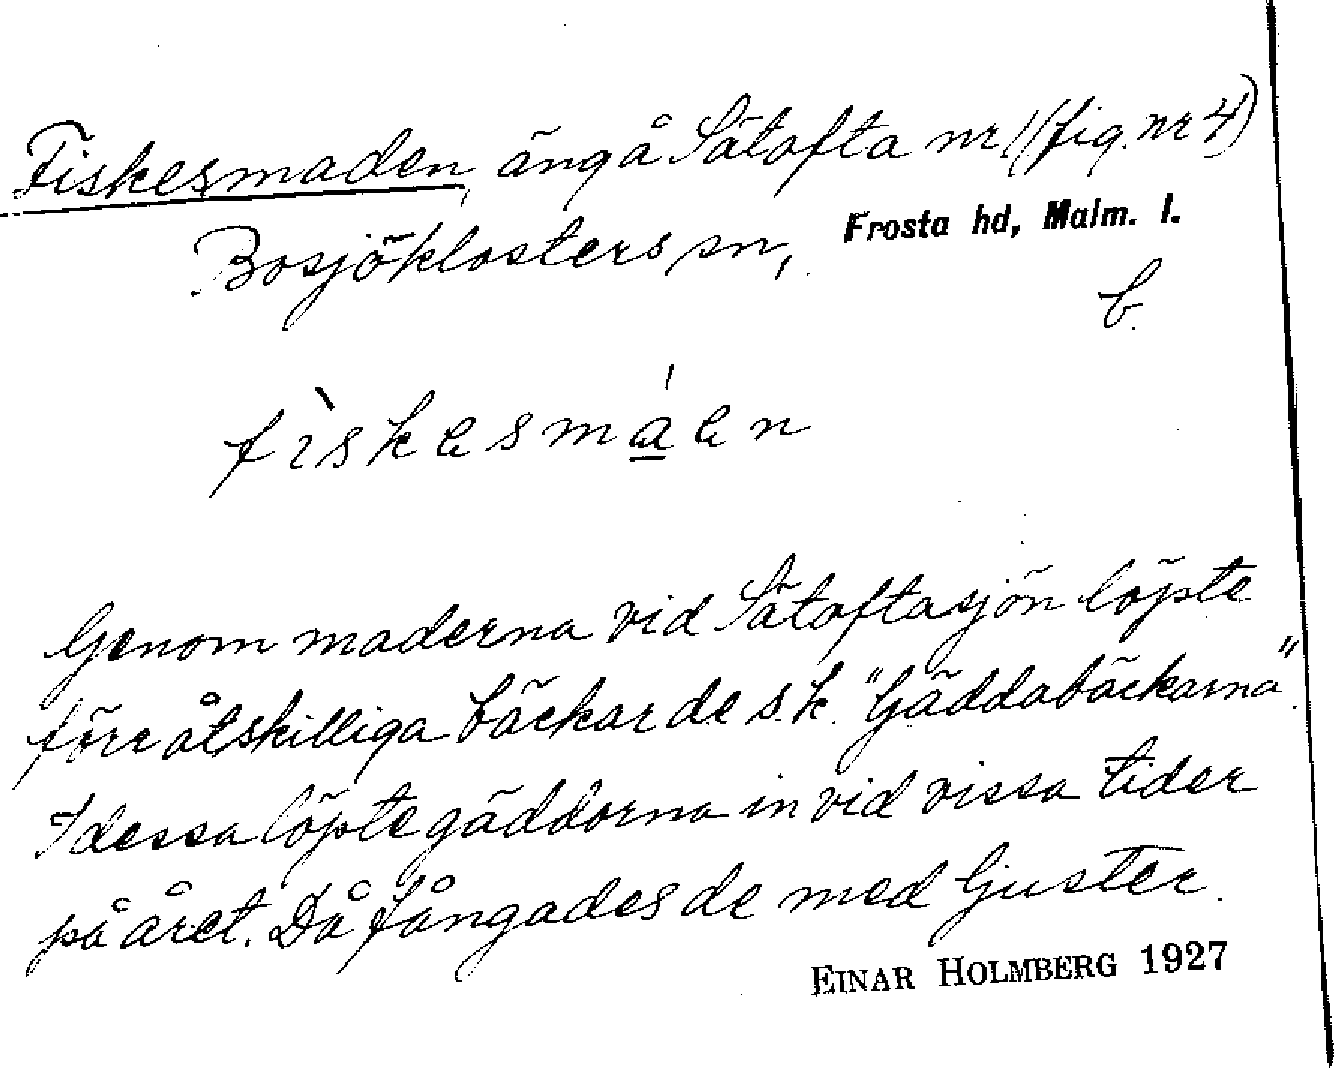 Fiskesmaden, äng å Sätofta nr 1 (fig. nr 4)
Bosjöklosters sn, Frosta hd, Malm. l.
b.
fìskesmáen
Genom maderna vid Sätoftasjön löpte
förr åtskilliga bäckar de s.k. "Gäddabäckarna".
I dessa löpte gäddorna in vid vissa tider
på året. Då fångades de med ljuster.
EINAR HOLMBERG 1927